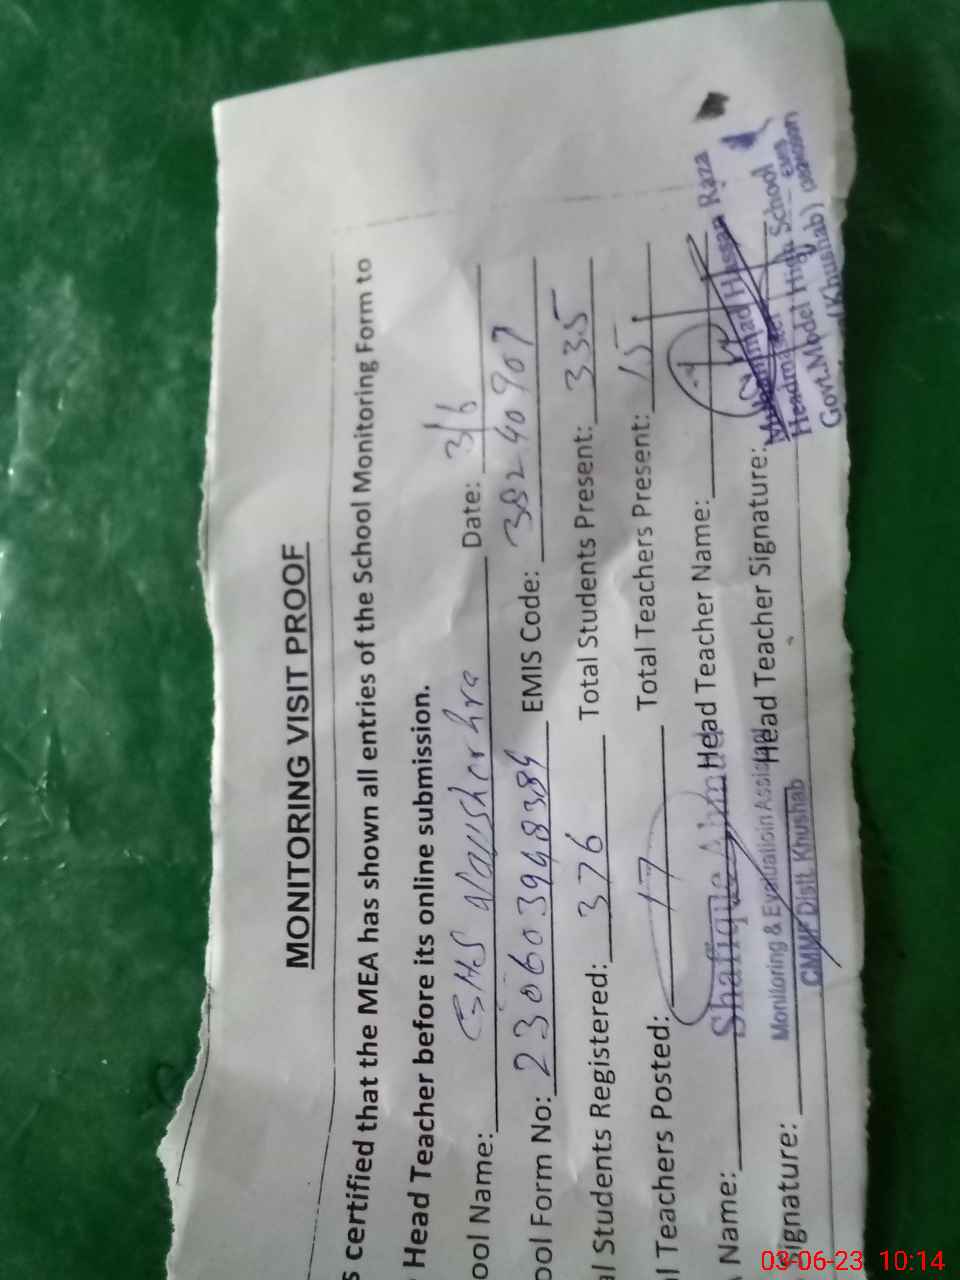 MONITORING VISIT PROOF
s certified that the MEA has shown all entries of the School Monitoring Form to
Head Teacher before its online submission.
ool Name: GHS Naushehra Date: 3/6
ool Form No: 230603948384 EMIS Code: 38240907
al Students Registered: 376 Total Students Present: 335
l Teachers Posted: 17 Total Teachers Present: 15
Name: Shafique Head Teacher Name:
Monitoring & Evaluation Assistant
CMMF Distt. Khushab
Signature: Head Teacher Signature:
Muhammad Hassan Raza
Headmaster
Govt. Model High School
(Khushab)
03-06-23 10:14